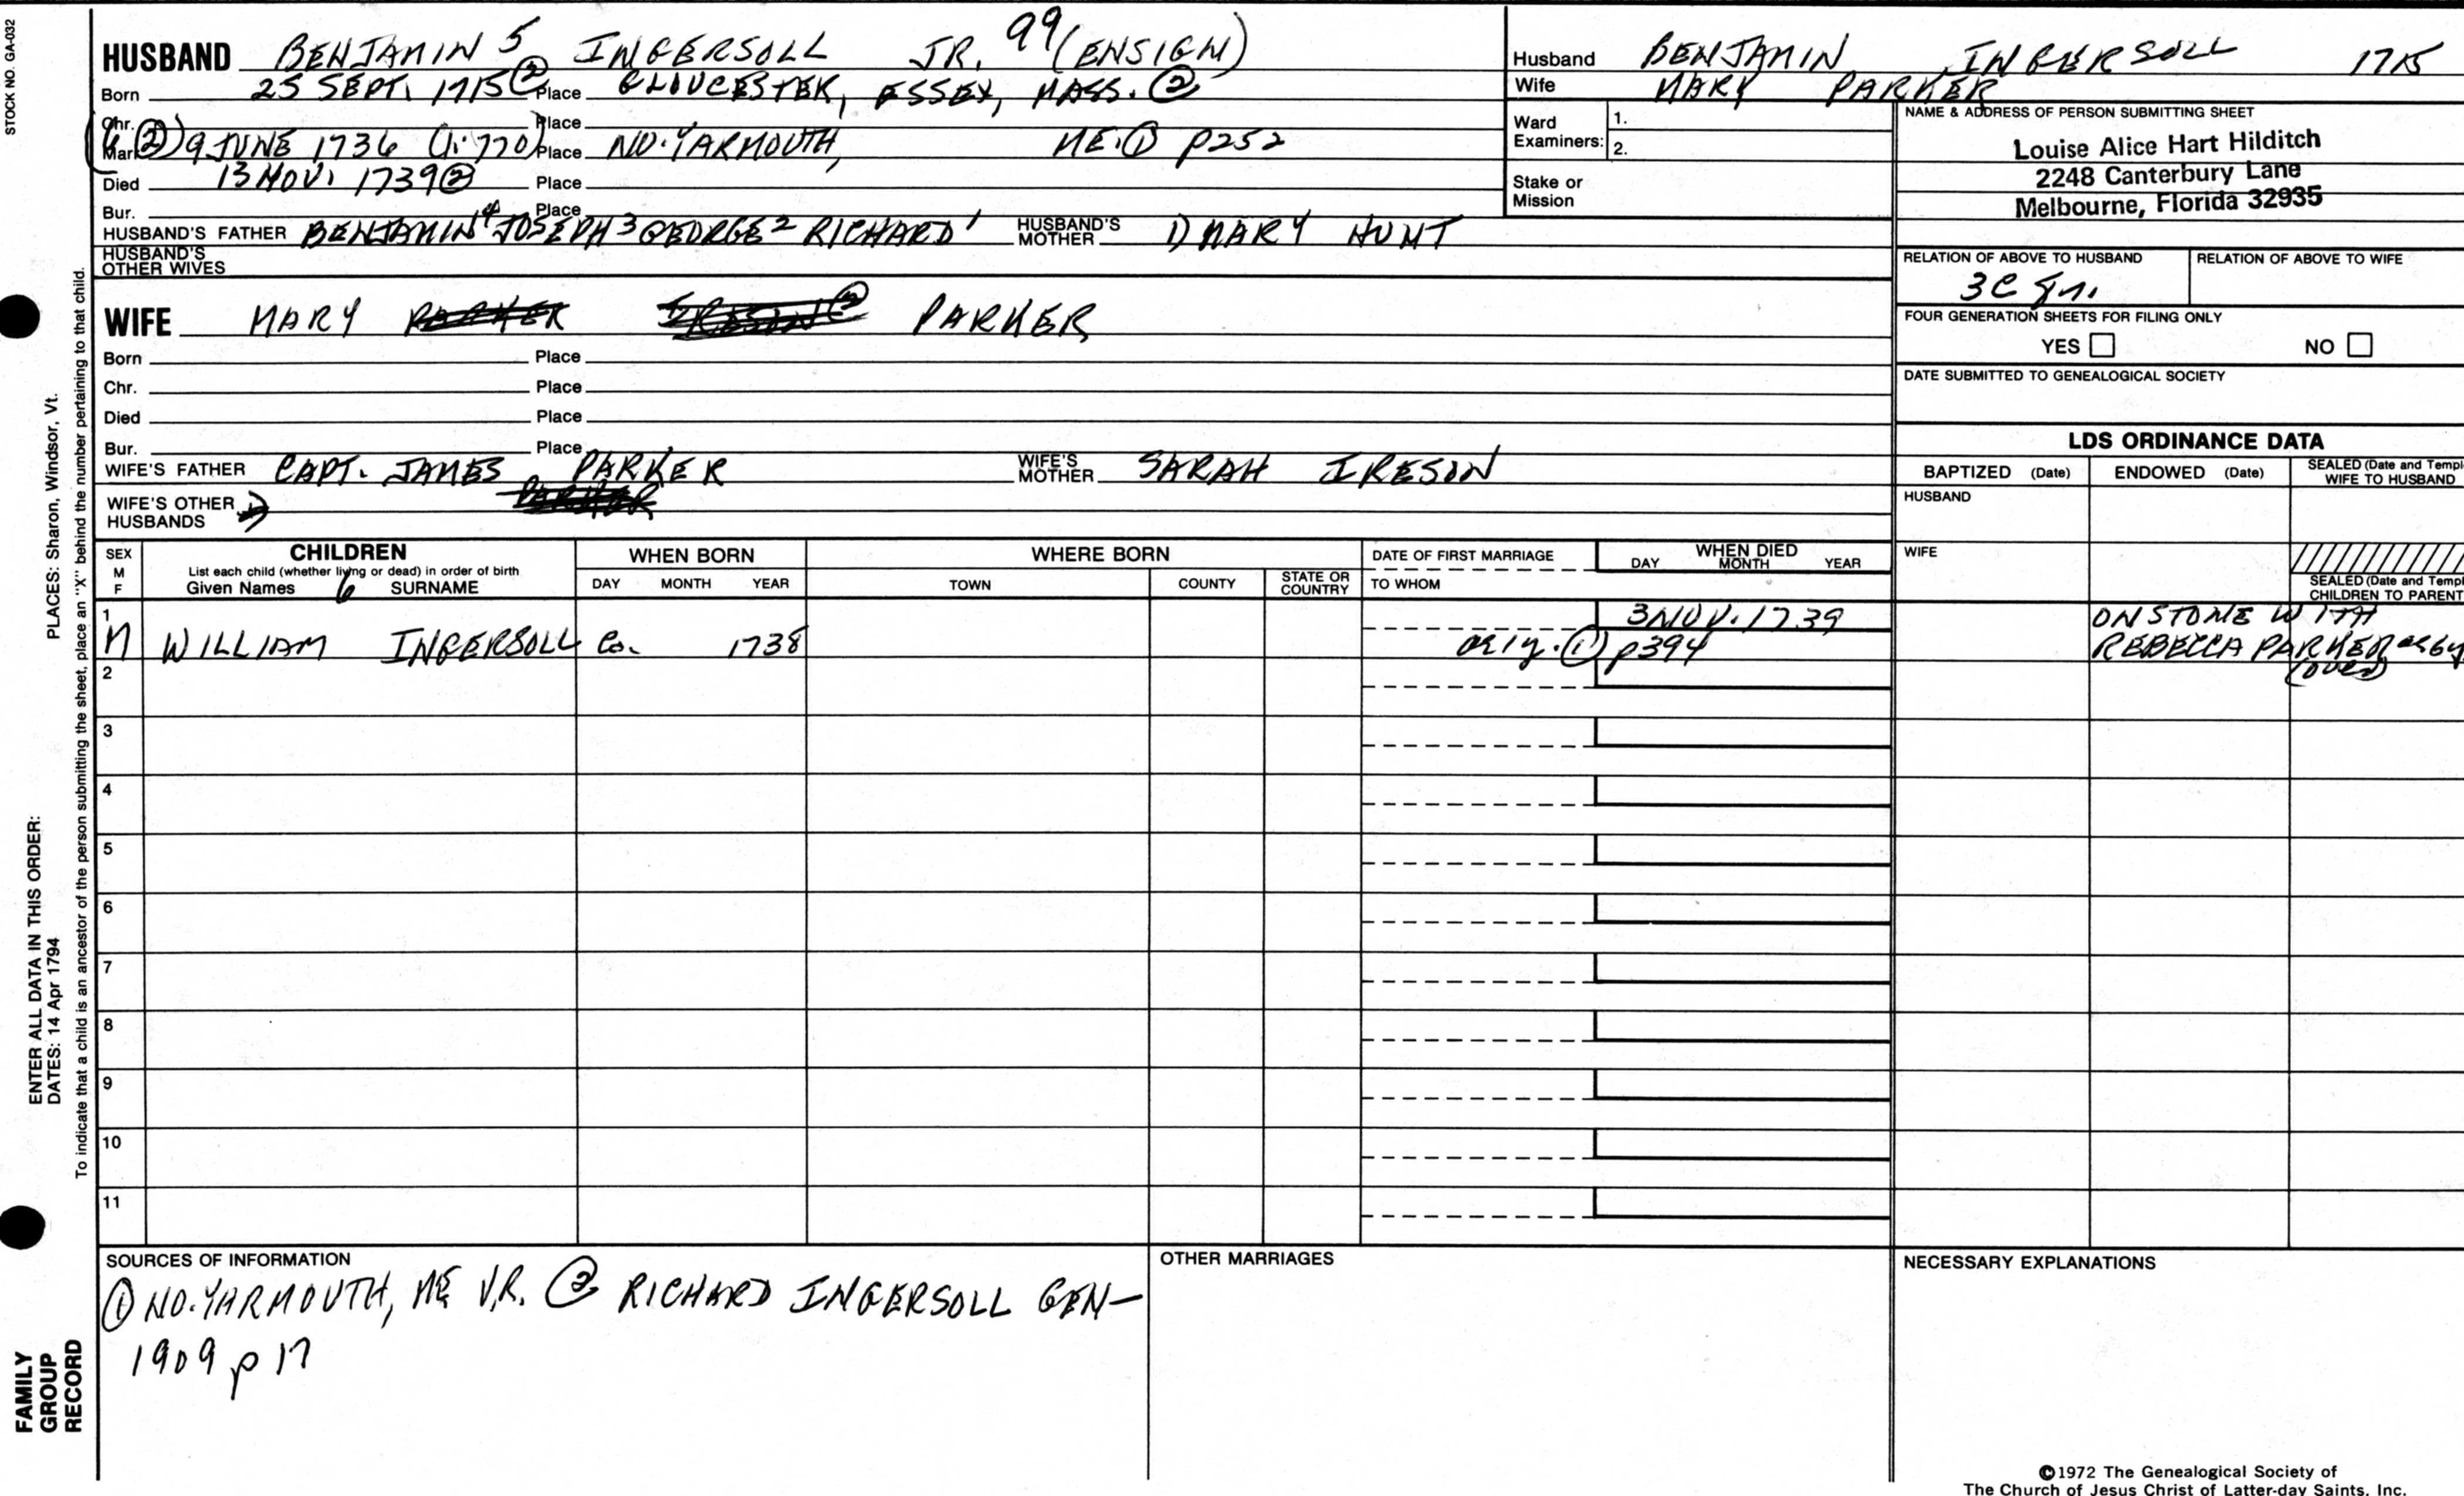 STOCK NO. GA-032
HUSBAND BENJAMIN 5 INGERSOLL JR. 99 (ENSIGN)
Born 25 SEPT. 1715 ② Place GLOUCESTER, ESSEX, MASS. ②
Chr. Place
Mar. ②) 9 JUNE 1736 Place NO. YARMOUTH, ME. ① p252
Died 13 NOV. 1739 ② Place
Bur. Place
HUSBAND'S FATHER BENJAMIN 4 JOSEPH 3 GEORGE 2 RICHARD 1 HUSBAND'S MOTHER 1) MARY HUNT
HUSBAND'S OTHER WIVES
WIFE MARY PARKER IRESON ② PARKER
Born Place
Chr. Place
Died Place
Bur. Place
WIFE'S FATHER CAPT. JAMES PARKER WIFE'S MOTHER SARAH IRESON
WIFE'S OTHER HUSBANDS PARKER
Husband BENJAMIN INGERSOLL 1715
Wife MARY PARKER
Ward Examiners: 1.
2.
Stake or Mission
NAME & ADDRESS OF PERSON SUBMITTING SHEET
Louise Alice Hart Hilditch
2248 Canterbury Lane
Melbourne, Florida 32935
RELATION OF ABOVE TO HUSBAND RELATION OF ABOVE TO WIFE
3C
FOUR GENERATION SHEETS FOR FILING ONLY
YES NO
DATE SUBMITTED TO GENEALOGICAL SOCIETY
LDS ORDINANCE DATA
BAPTIZED (Date) ENDOWED (Date) SEALED (Date and Templ
WIFE TO HUSBAND
HUSBAND
WIFE
SEALED (Date and Templ
CHILDREN TO PARENT
SEX M F
CHILDREN
List each child (whether living or dead) in order of birth
Given Names 6 SURNAME
WHEN BORN
DAY MONTH YEAR
WHERE BORN
TOWN COUNTY STATE OR COUNTRY
DATE OF FIRST MARRIAGE
TO WHOM
WHEN DIED
DAY MONTH YEAR
1 3 NOV. 1739 ON STONE WITH
M WILLIAM INGERSOLL Co. 1738 ① p394 REBECCA PARKER
(OVER)
2
3
4
5
6
7
8
9
10
11
SOURCES OF INFORMATION
① NO. YARMOUTH, ME V.R. ② RICHARD INGERSOLL GEN—
1909 p 17
OTHER MARRIAGES
NECESSARY EXPLANATIONS
©1972 The Genealogical Society of
The Church of Jesus Christ of Latter-day Saints, Inc.
PLACES: Sharon, Windsor, Vt.
ENTER ALL DATA IN THIS ORDER:
DATES: 14 Apr 1794
To indicate that a child is an ancestor of the person submitting the sheet, place an "X" behind the number pertaining to that child.
FAMILY
GROUP
RECORD